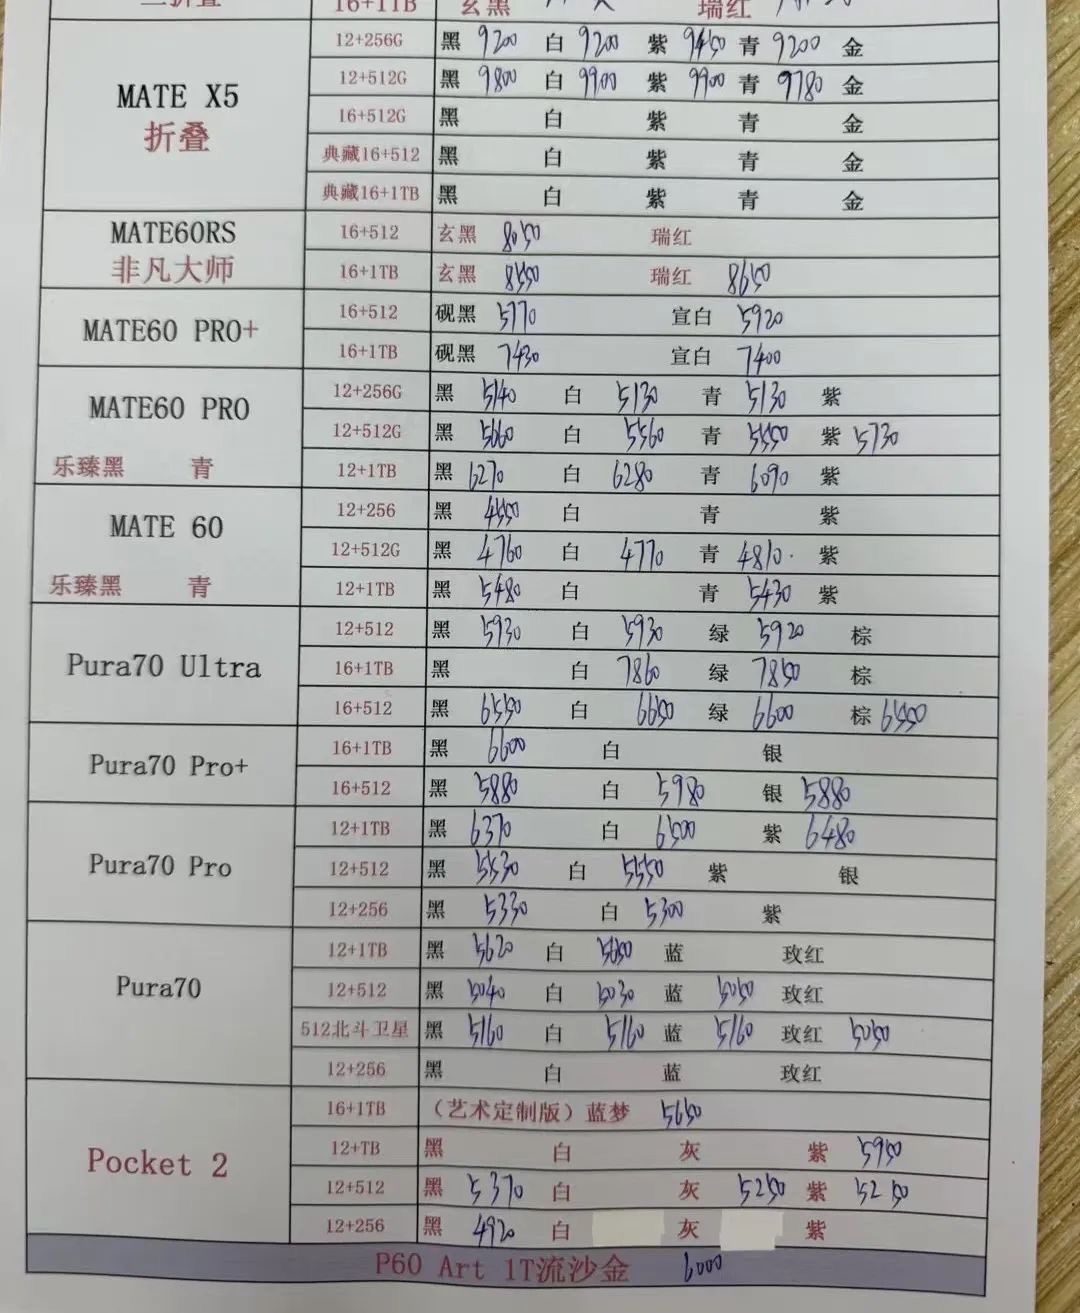 16+1TB 玄黑 瑞红
MATE X5
折叠
12+256G 黑 9200 白 9200 紫 9450 青 9200 金
12+512G 黑 9800 白 9900 紫 9900 青 9780 金
16+512G 黑 白 紫 青 金
典藏16+512 黑 白 紫 青 金
典藏16+1TB 黑 白 紫 青 金
MATE60RS
非凡大师
16+512 玄黑 8050 瑞红
16+1TB 玄黑 8550 瑞红 8650
MATE60 PRO+
16+512 砚黑 5770 宣白 5920
16+1TB 砚黑 7430 宣白 7400
MATE60 PRO
乐臻黑 青
12+256G 黑 5140 白 5130 青 5130 紫
12+512G 黑 5660 白 5560 青 5550 紫 5730
12+1TB 黑 6270 白 6280 青 6090 紫
MATE 60
乐臻黑 青
12+256 黑 4550 白 青 紫
12+512G 黑 4760 白 4770 青 4810. 紫
12+1TB 黑 5480 白 青 5430 紫
Pura70 Ultra
12+512 黑 5930 白 5930 绿 5920 棕
16+1TB 黑 白 7860 绿 7850 棕
16+512 黑 6550 白 6650 绿 6600 棕 6550
Pura70 Pro+
16+1TB 黑 6600 白 银
16+512 黑 5880 白 5980 银 5880
Pura70 Pro
12+1TB 黑 6370 白 6500 紫 6480
12+512 黑 5530 白 5550 紫 银
12+256 黑 5330 白 5300 紫
Pura70
12+1TB 黑 5620 白 5650 蓝 玫红
12+512 黑 5040 白 5030 蓝 5050 玫红
512北斗卫星 黑 5160 白 5160 蓝 5160 玫红 5050
12+256 黑 白 蓝 玫红
Pocket 2
16+1TB （艺术定制版）蓝梦 5650
12+TB 黑 白 灰 紫 5950
12+512 黑 5370 白 灰 5250 紫 5250
12+256 黑 4920 白 灰 紫
P60 Art 1T流沙金 6000